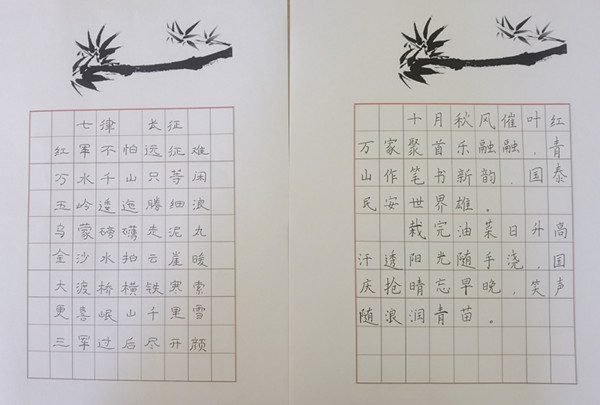 七律 长征
红军不怕远征难
万水千山只等闲
五岭逶迤腾细浪
乌蒙磅礴走泥丸
金沙水拍云崖暖
大渡桥横铁索寒
更喜岷山千里雪
三军过后尽开颜
十月秋风催叶红
万家聚首乐融融，青
山作笔书新韵，国泰
民安世界雄。
栽完油菜日升高
汗透阳光随手浇，国
庆抢晴忘早晚，笑声
随浪润青苗。